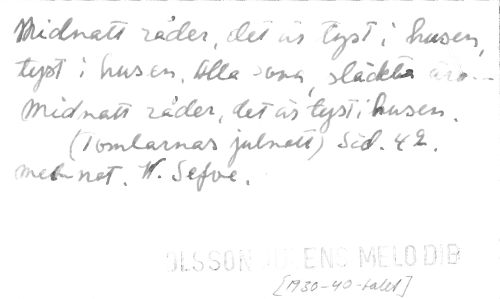 Midnatt råder, det är tyst i husen,
tyst i husen. Alla sova, släckta äro---
Midnatt råder, det är tyst i husen.
(Tomtarnas julnatt) Sid. 42.
med not. W. Sefve.
OLSSON ENS MELODIB
[1930-40-talet]